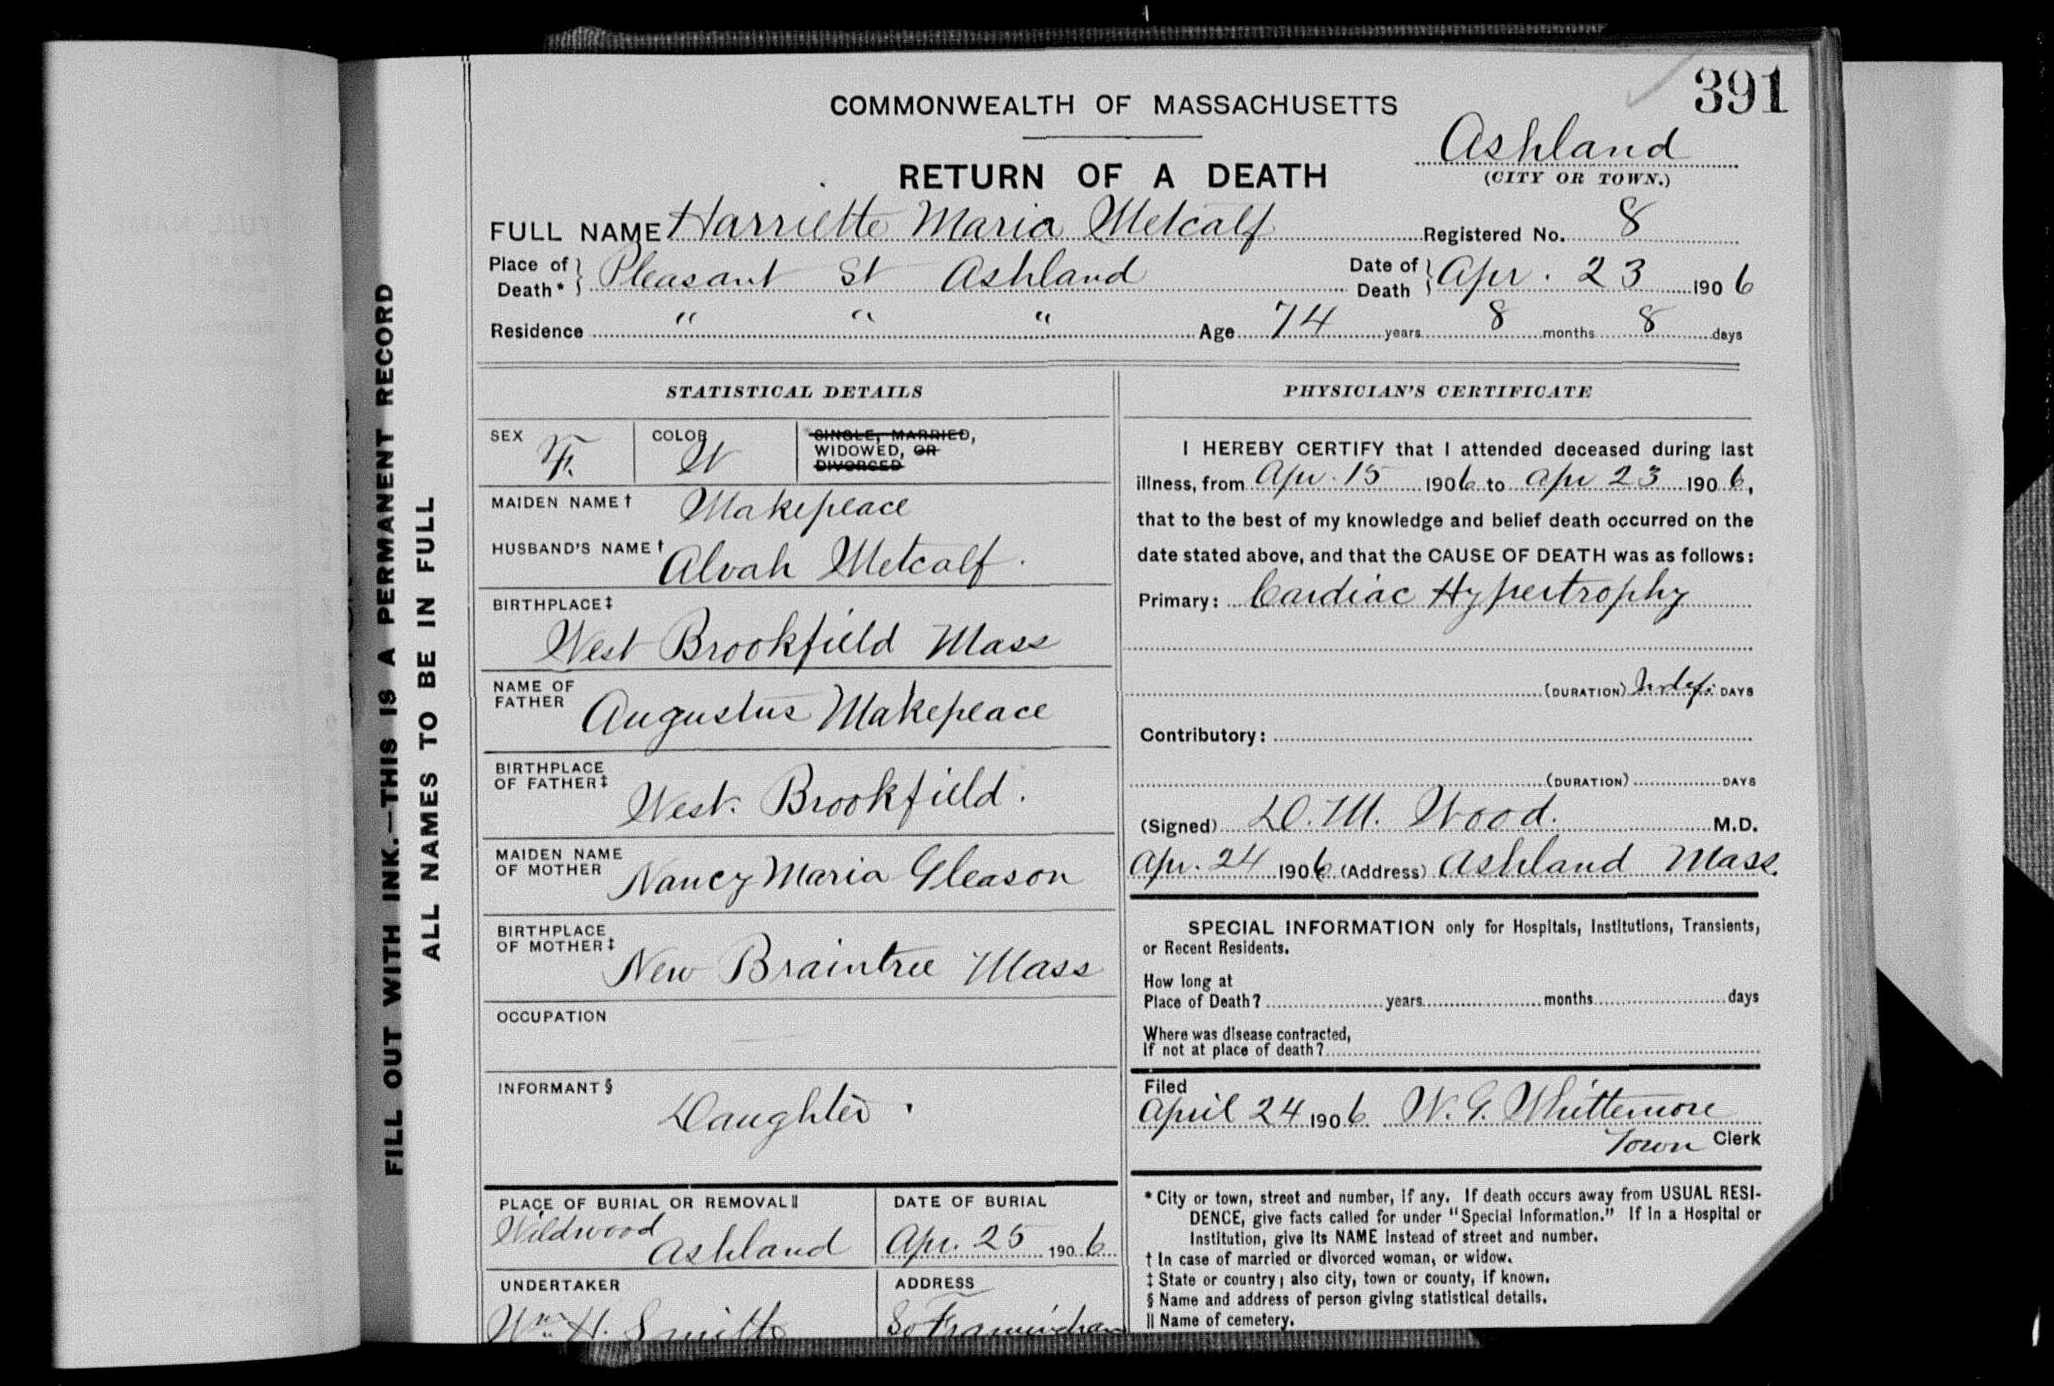 391
COMMONWEALTH OF MASSACHUSETTS
Ashland
(CITY OR TOWN.)
RETURN OF A DEATH
FULL NAME Harriette Maria Metcalf Registered No. 8
Place of Death* } Pleasant St Ashland Date of Death } Apr. 23 1906
Residence " " " Age 74 years 8 months 8 days
FILL OUT WITH INK.—THIS IS A PERMANENT RECORD
ALL NAMES TO BE IN FULL
STATISTICAL DETAILS
SEX F. COLOR W SINGLE, MARRIED,
WIDOWED, OR
DIVORCED
MAIDEN NAME† Makepeace
HUSBAND'S NAME† Alvah Metcalf.
BIRTHPLACE‡
West Brookfield Mass
NAME OF
FATHER Augustus Makepeace
BIRTHPLACE
OF FATHER‡ West. Brookfield.
MAIDEN NAME
OF MOTHER Nancy Maria Gleason
BIRTHPLACE
OF MOTHER‡ New Braintree Mass
OCCUPATION
INFORMANT§
Daughter.
PLACE OF BURIAL OR REMOVAL‖
Wildwood
Ashland
DATE OF BURIAL
Apr. 25 1906
UNDERTAKER
Wm H. Smith
ADDRESS
So Framingham
PHYSICIAN'S CERTIFICATE
I HEREBY CERTIFY that I attended deceased during last
illness, from Apr. 15 1906 to Apr 23 1906,
that to the best of my knowledge and belief death occurred on the
date stated above, and that the CAUSE OF DEATH was as follows:
Primary: Cardiac Hypertrophy
(DURATION) Indef. DAYS
Contributory:
(DURATION) DAYS
(Signed) D. M. Wood. M.D.
Apr. 24 1906 (Address) Ashland Mass.
SPECIAL INFORMATION only for Hospitals, Institutions, Transients,
or Recent Residents.
How long at
Place of Death? years months days
Where was disease contracted,
If not at place of death?
Filed
April 24 1906 W. G. Whittemore
Town Clerk
* City or town, street and number, if any. If death occurs away from USUAL RESI-
DENCE, give facts called for under "Special Information." If in a Hospital or
Institution, give its NAME instead of street and number.
† In case of married or divorced woman, or widow.
‡ State or country; also city, town or county, if known.
§ Name and address of person giving statistical details.
‖ Name of cemetery.